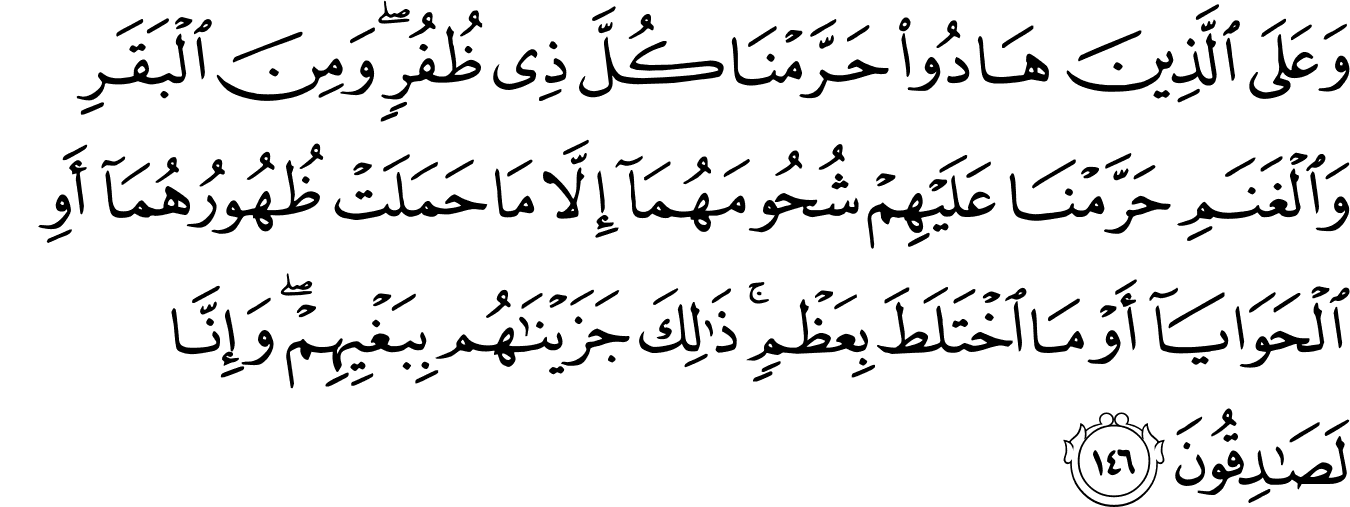 وَعَلَى ٱلَّذِينَ هَادُوا۟ حَرَّمْنَا كُلَّ ذِى ظُفُرٍۢ ۖ وَمِنَ ٱلْبَقَرِ
وَٱلْغَنَمِ حَرَّمْنَا عَلَيْهِمْ شُحُومَهُمَآ إِلَّا مَا حَمَلَتْ ظُهُورُهُمَآ أَوِ
ٱلْحَوَايَآ أَوْ مَا ٱخْتَلَطَ بِعَظْمٍۢ ۚ ذَٰلِكَ جَزَيْنَـٰهُم بِبَغْيِهِمْ ۖ وَإِنَّا
لَصَـٰدِقُونَ ١٤٦